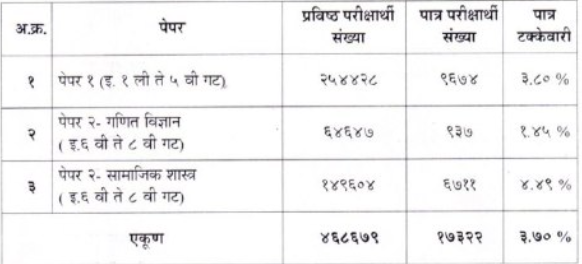 अ.क्र. पेपर प्रविष्ठ परीक्षार्थी संख्या पात्र परीक्षार्थी संख्या पात्र टक्केवारी
१ पेपर १ (इ. १ ली ते ५ वी गट) २५४४२८ ९६७४ ३.८० %
२ पेपर २- गणित विज्ञान
( इ.६ वी ते ८ वी गट) ६४६४७ ९३७ १.४५ %
३ पेपर २- सामाजिक शास्त्र
( इ.६ वी ते ८ वी गट) १४९६०४ ६७११ ४.४९ %
एकूण ४६८६७९ १७३२२ ३.७० %